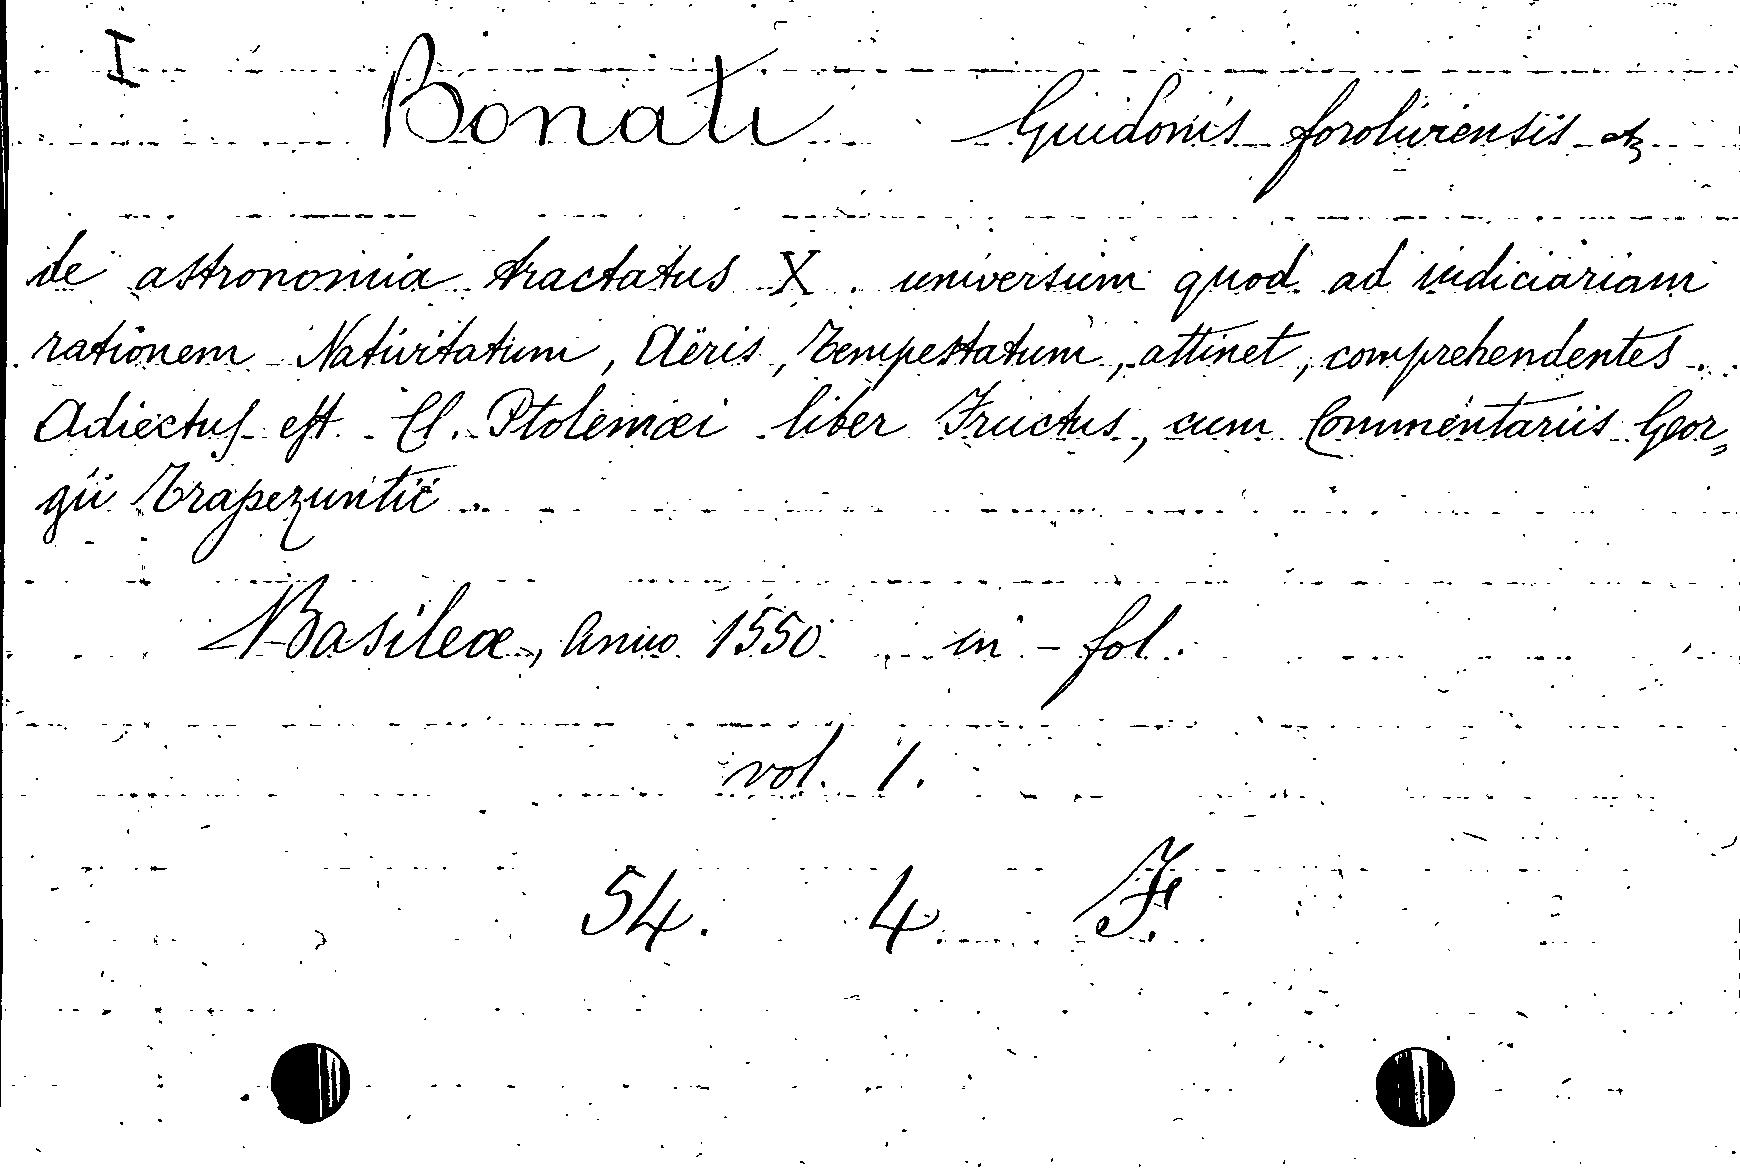 I
Bonati Guidonis foroliviensis etz
de astronomia tractatus X. universum quod ad iudiciariam
rationem Nativitatum, Aëris, Tempestatum, attinet, comprehendentes.
Adiectus est Cl. Ptolemæi liber Fructus, cum Commentariis Geor„
gii Trapezuntii.
Basileæ, Anno 1550. in-fol.
vol. 1.
54. 4. F.